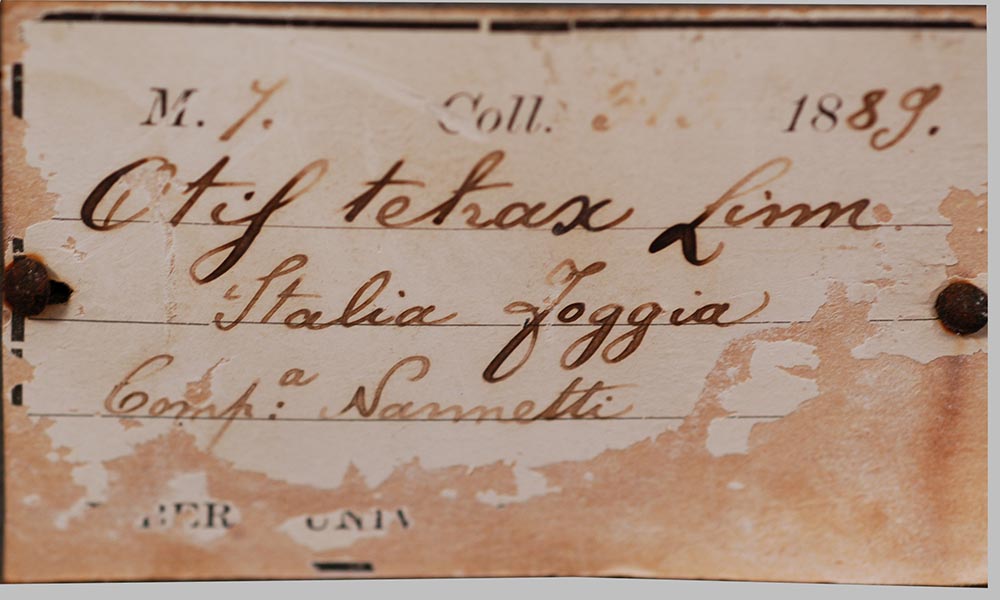 M. 7. Coll. 1889.
Otis tetrax Linn.
Italia Foggia
Comp.ª Nannetti
UNIV